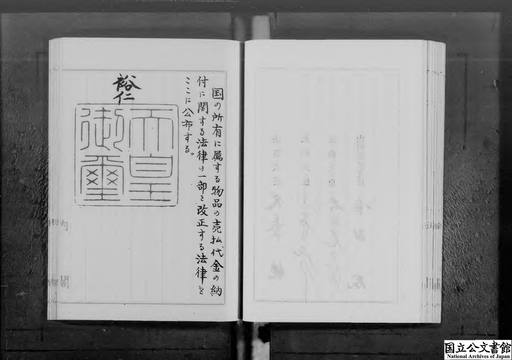 国の所有に属する物品の売払代金の納
付に関する法律の一部を改正する法律を
ここに公布する。
裕仁
天皇
御璽
国立公文書館
National Archives of Japan